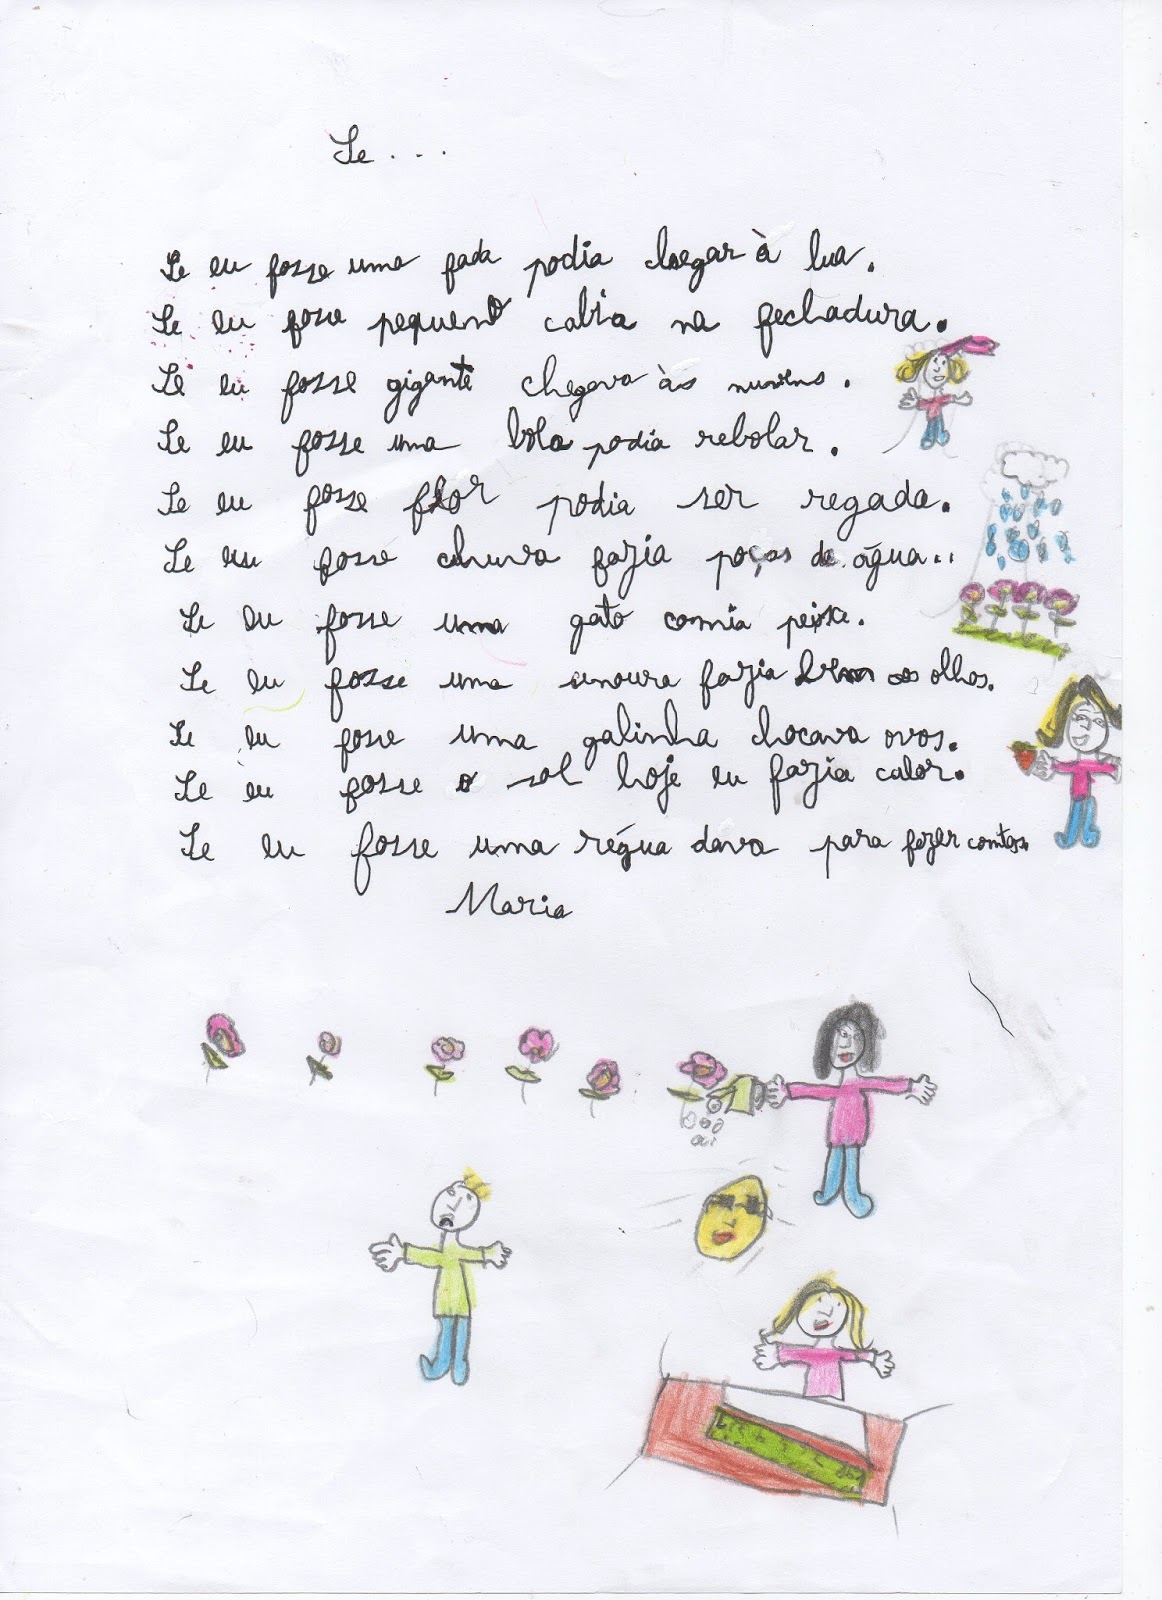 Se...
Se eu fosse uma fada podia chegar à lua.
Se eu fosse pequeno cabia na fechadura.
Se eu fosse gigante chegava às nuvens.
Se eu fosse uma bola podia rebolar.
Se eu fosse flor podia ser regada.
Se eu fosse chuva fazia poças de água..
Se eu fosse uma gato comia peixe.
Se eu fosse uma cenoura fazia bem aos olhos.
Se eu fosse uma galinha chocava ovos.
Se eu fosse o sol hoje eu fazia calor.
Se eu fosse uma régua dava para fazer contas.
Maria